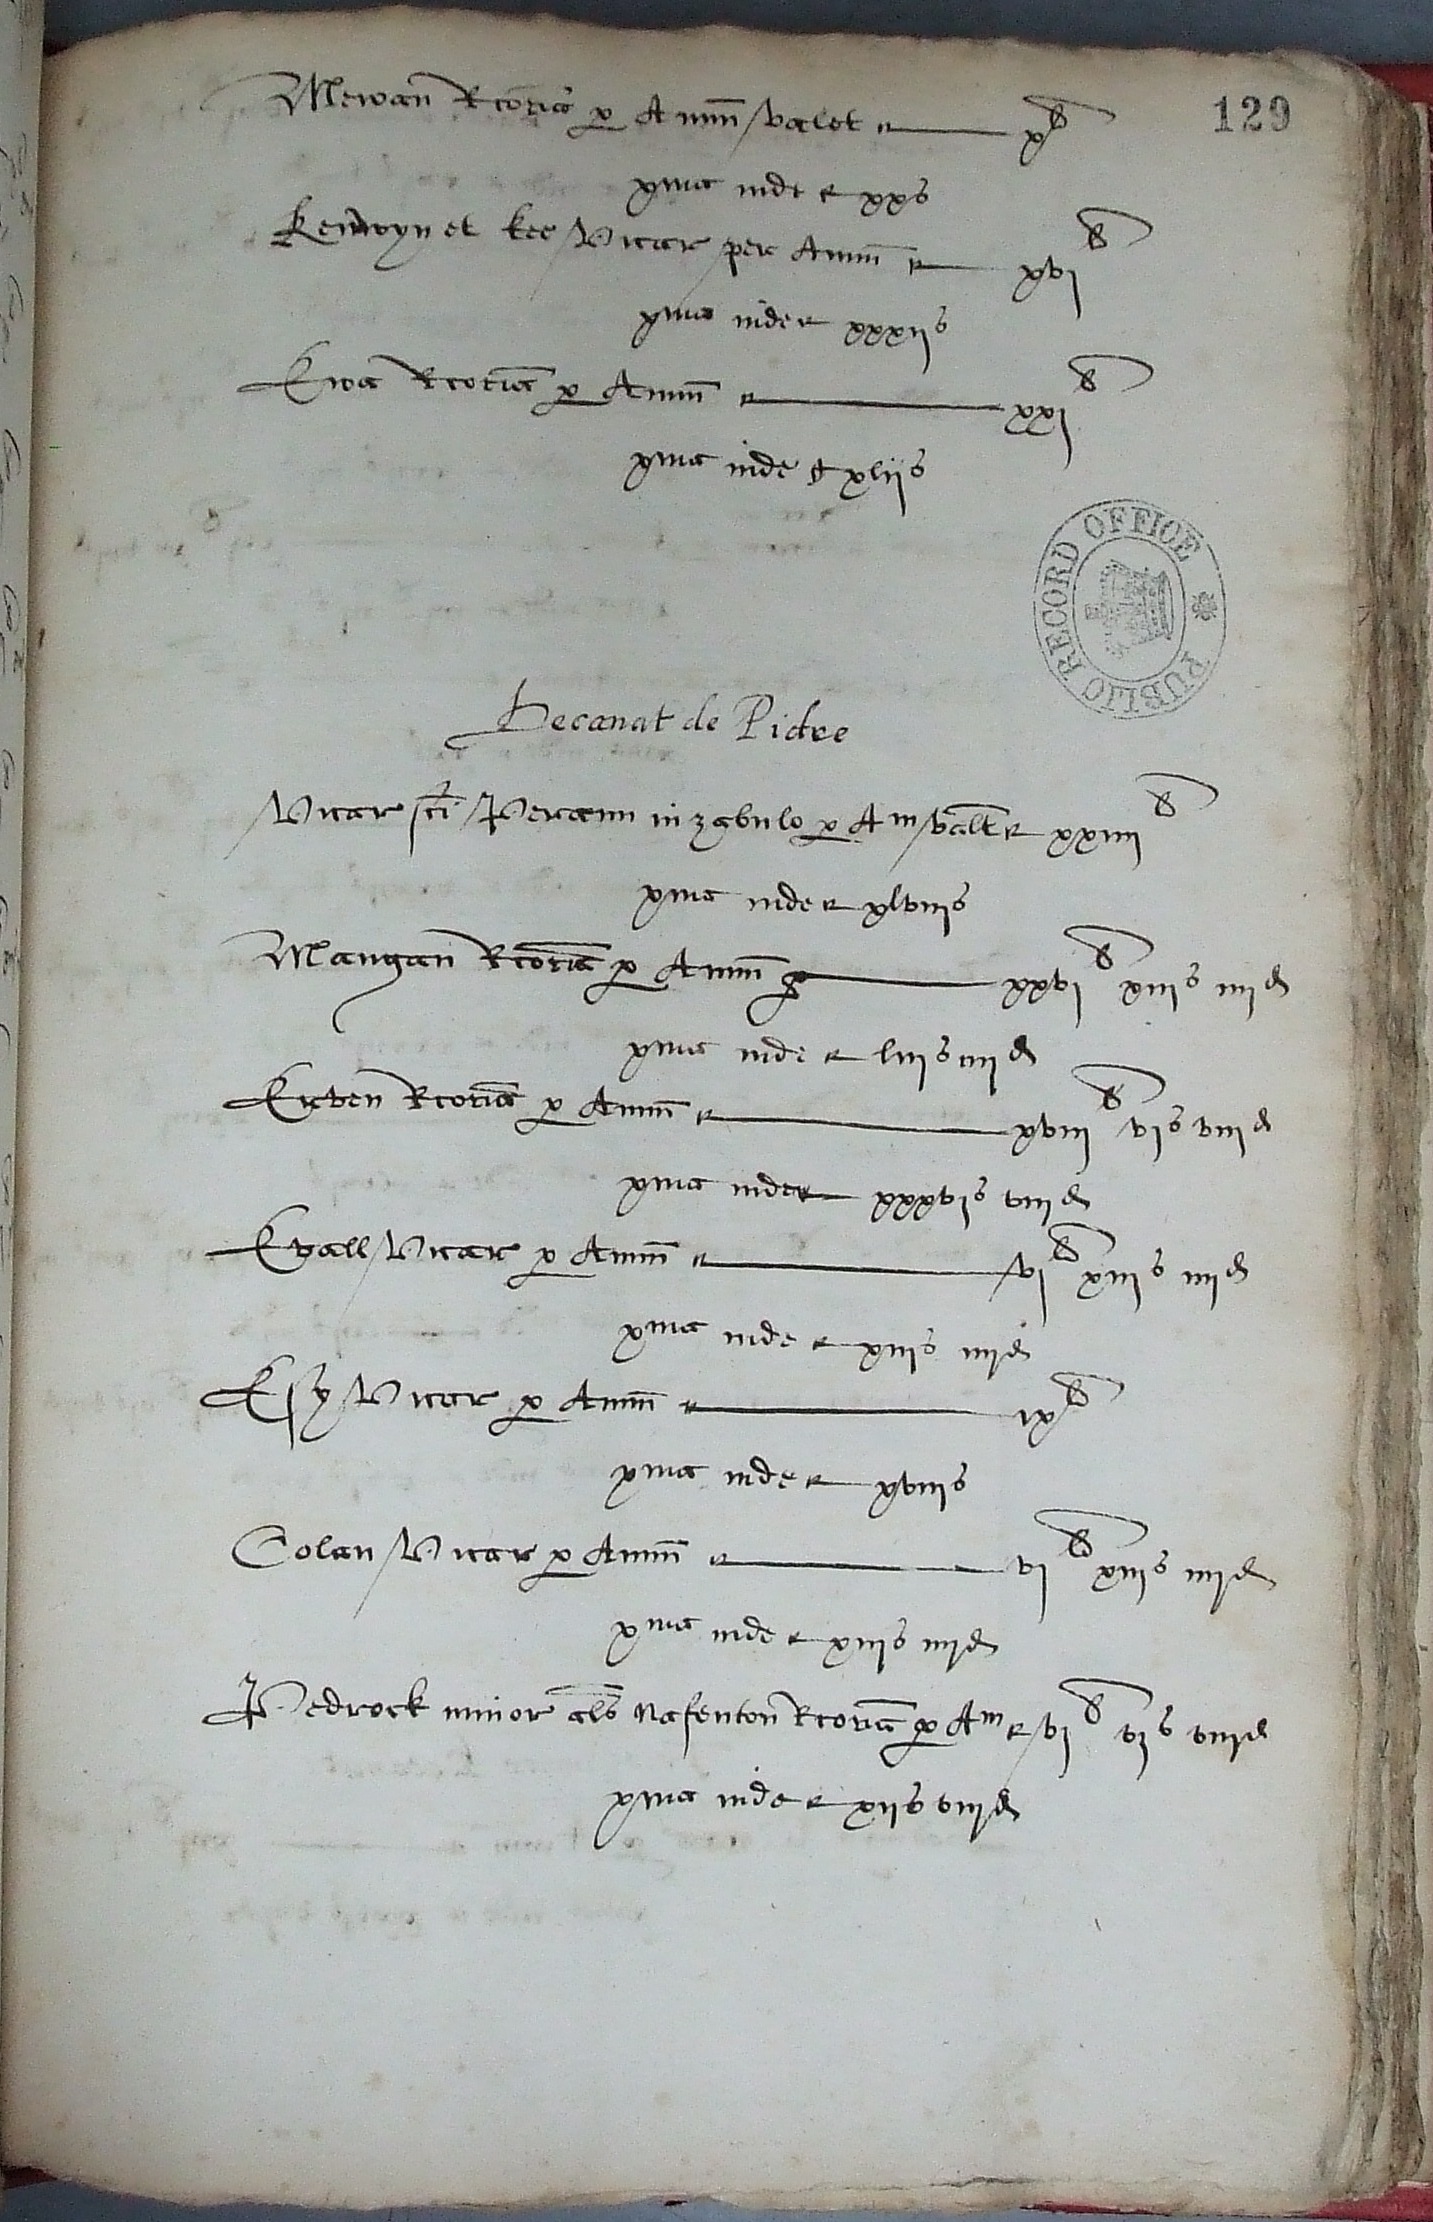 129
Mewan Rcoria p Annu valet — x li
xma inde xxs
Kenwyn et kee Vicar per Annu — xvj li
xma inde xxxijs
Ewa Rcoria p Annu — xxj li
xma inde xlijs
PUBLIC RECORD OFFICE
Decanat de Pidre
Vicar sci Peranni in zabulo p Am valt xxiiij li
xma inde xlviijs
Maugan Rcoria p Annu — xxvj li xiijs iiijd
xma inde liijs iiijd
Erven Rcoria p Annu — xviij li vjs viijd
xma inde xxxvjs viijd
Evall Vicar p Annu — vj li xiijs iiijd
xma inde xiijs iiijd
Essy Vicar p Annu — ix li
xma inde xviijs
Colan Vicar p Annu — vj li xiijs iiijd
xma inde xiijs iiijd
Pedrock minor als Nafenton Rcoria p Am vj li vjs viijd
xma inde xijs viijd